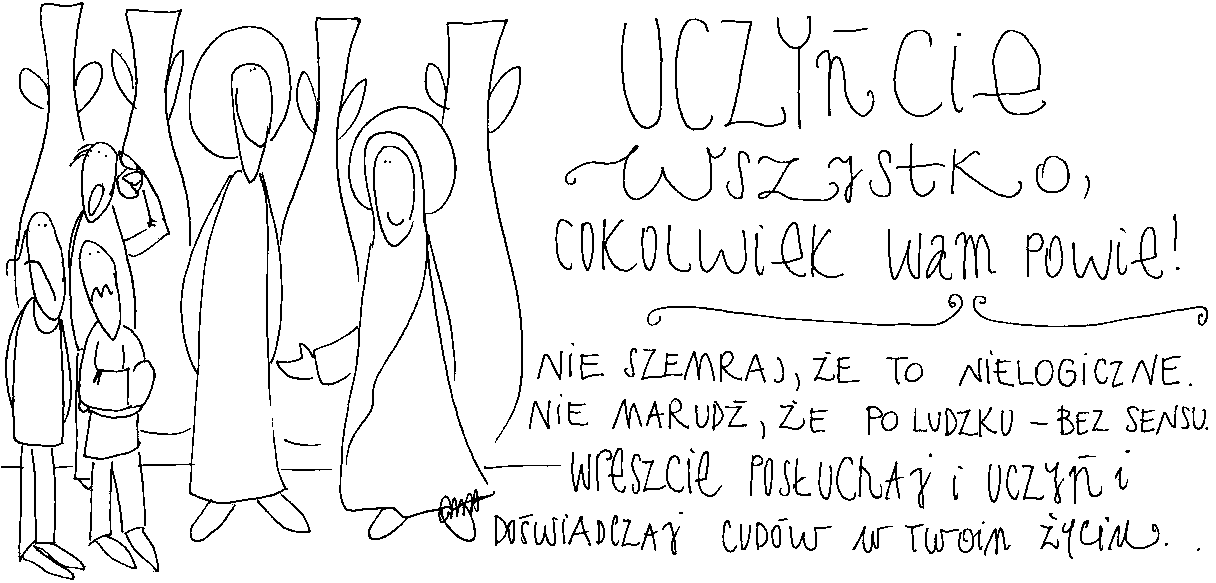 UCZYŃCIE
WSZYSTKO,
COKOLWIEK WAM POWIE!
NIE SZEMRAJ, ŻE TO NIELOGICZNE.
NIE MARUDŹ, ŻE PO LUDZKU – BEZ SENSU.
WRESZCIE POSŁUCHAJ I UCZYŃ I
DOŚWIADCZAJ CUDÓW W TWOIM ŻYCIU. .